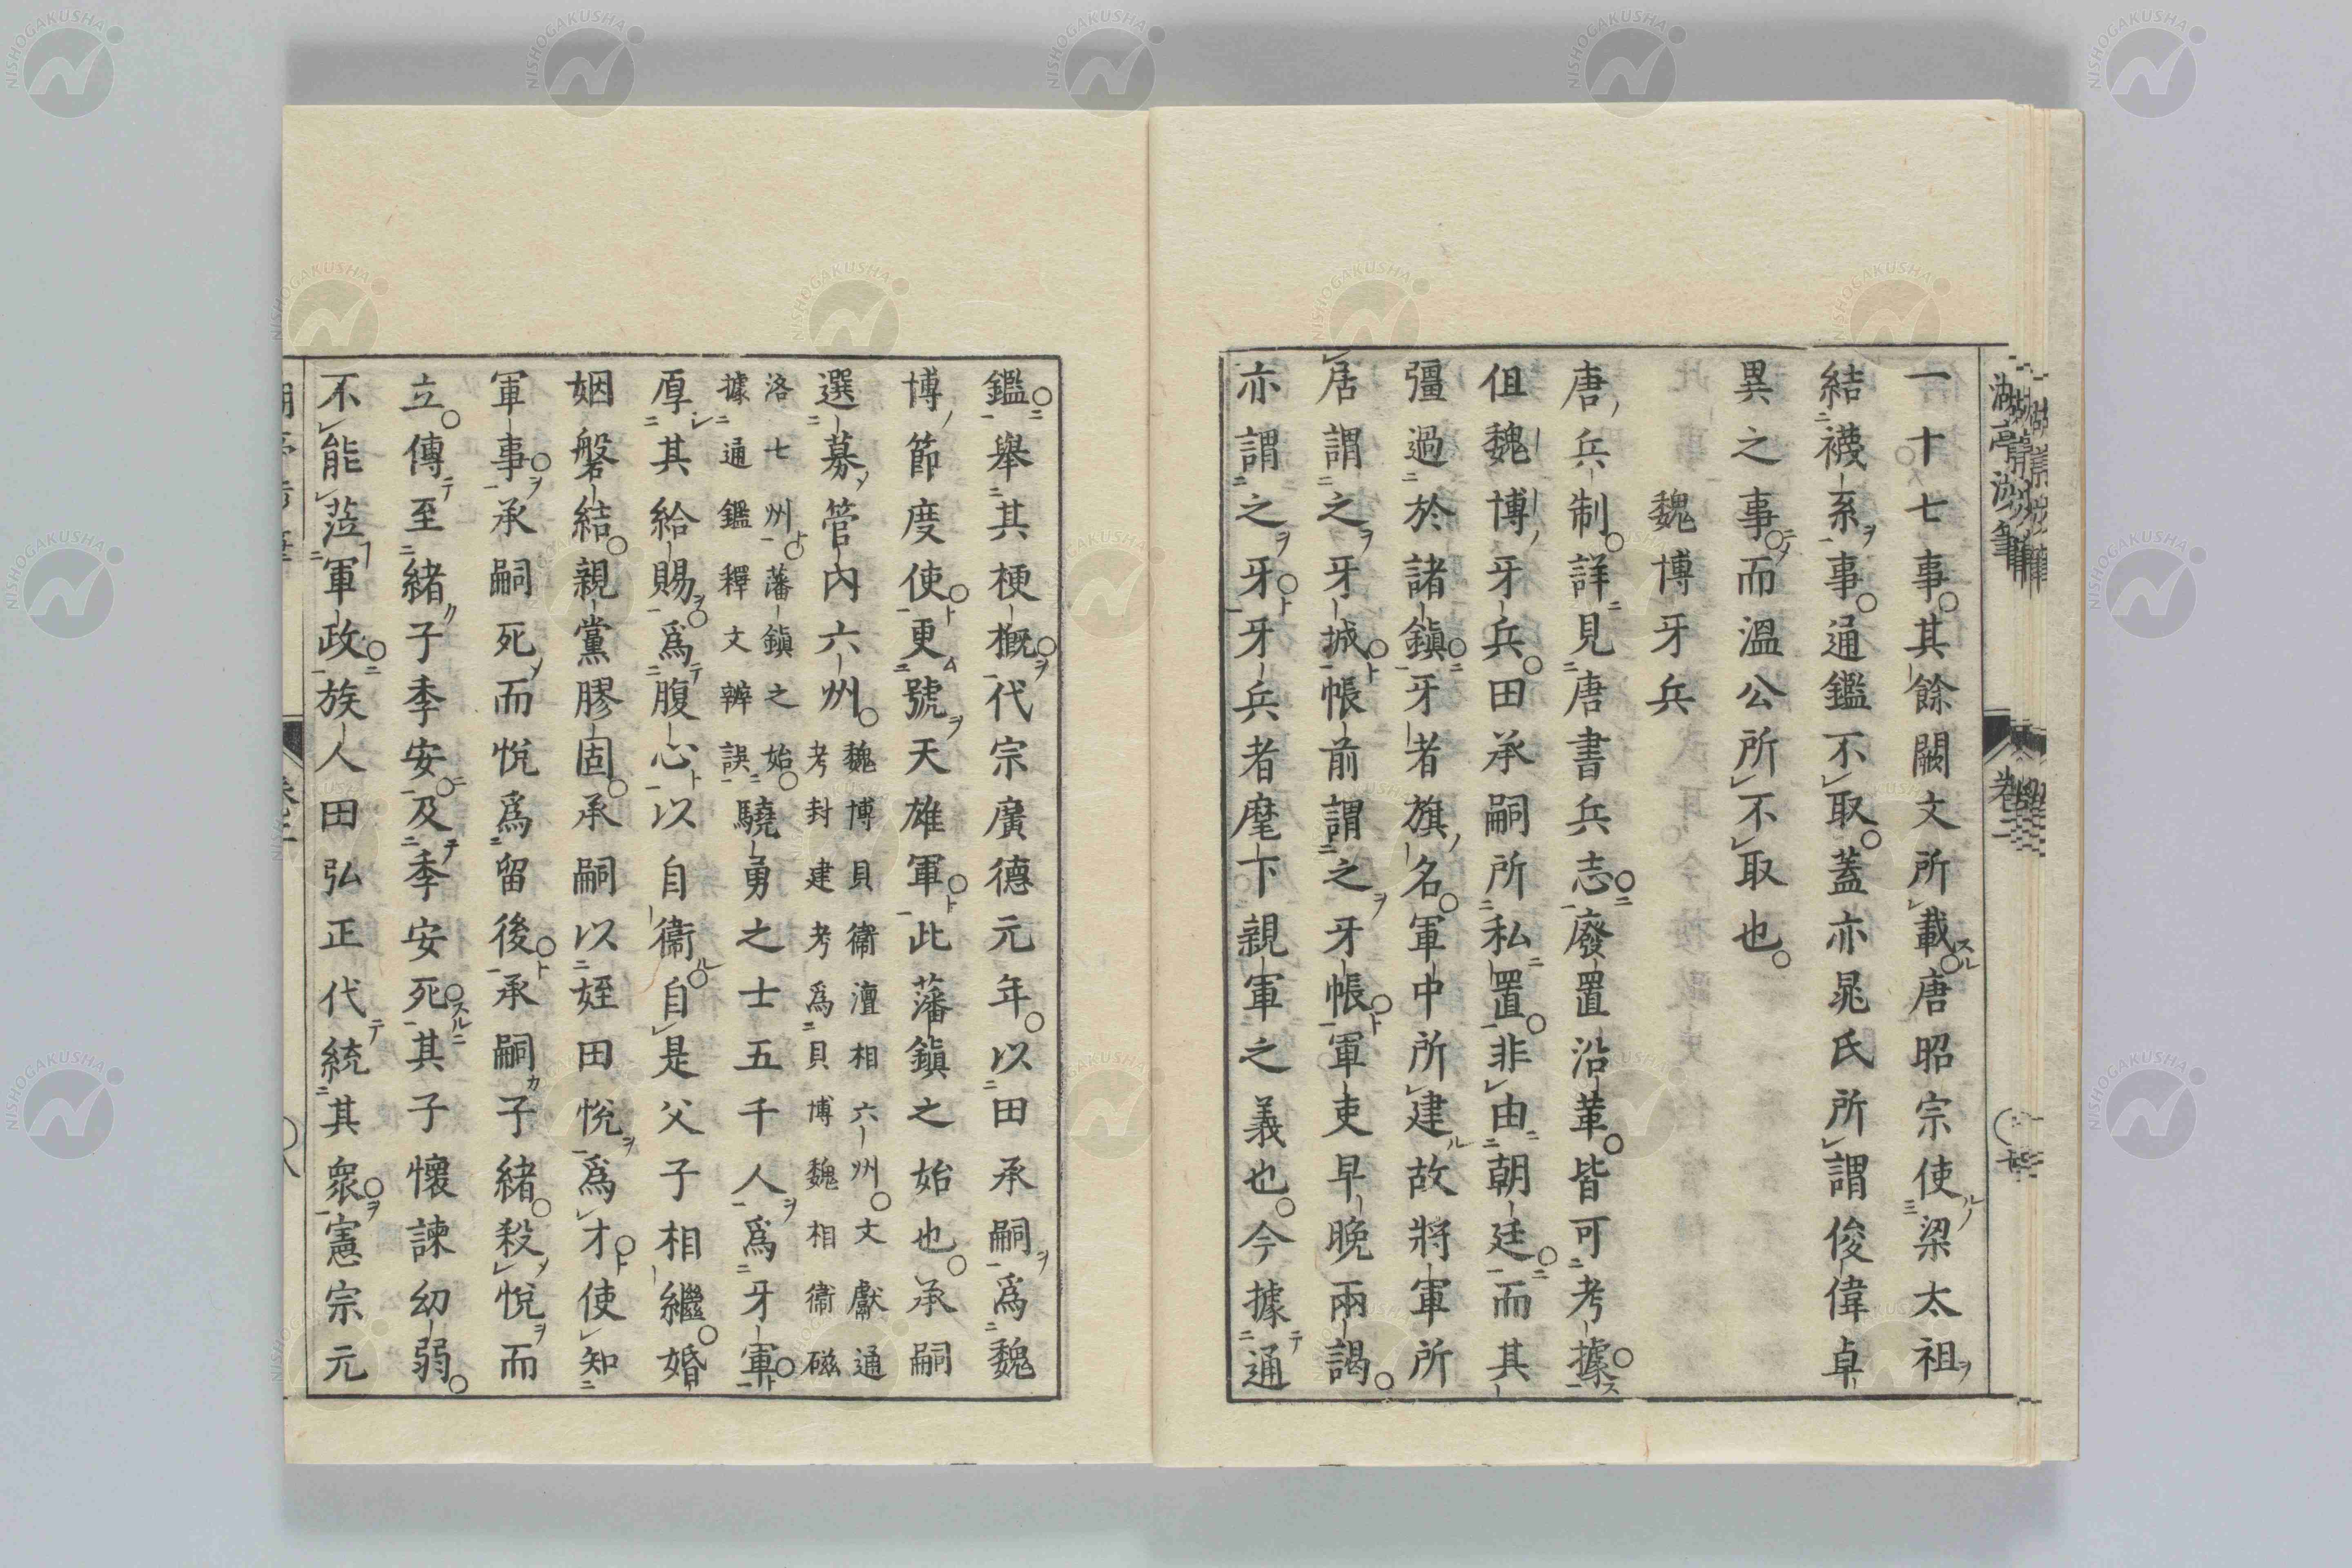 一十七事其餘闕文所載唐昭宗使梁太祖
結襪系事通鑑不取蓋亦晁氏所謂俊偉卓
異之事而溫公所不取也
魏博牙兵
唐兵制詳見唐書兵志廢置沿革皆可考據
但魏博牙兵田承嗣所私置非由朝廷而其
彊過於諸鎭牙者旗名軍中所建故將軍所
居謂之牙城帳前謂之牙帳軍吏早晚兩謁
亦謂之牙牙兵者麾下親軍之義也今據通
鑑舉其梗概代宗廣德元年以田承嗣爲魏
博節度使更號天雄軍此藩鎭之始也承嗣
選募管內六州魏博貝衞澶相六州文獻通
考封建考爲貝博魏相衞磁
洛七州藩鎭之始
據通鑑釋文辨誤驍勇之士五千人爲牙軍
厚其給賜爲腹心以自衞自是父子相繼婚
姻盤結親黨膠固承嗣以姪田悅爲才使知
軍事承嗣死而悅爲留後承嗣子緒殺悅而
立傳至緒子季安及季安死其子懷諫幼弱
不能蒞軍政族人田弘正代統其衆憲宗元
卷三
NISHOGAKUSHA